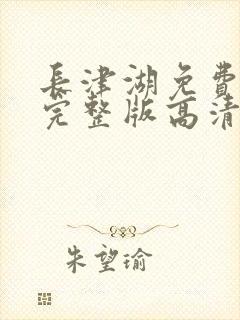 長津湖免費
完整版高清
朱望瑜